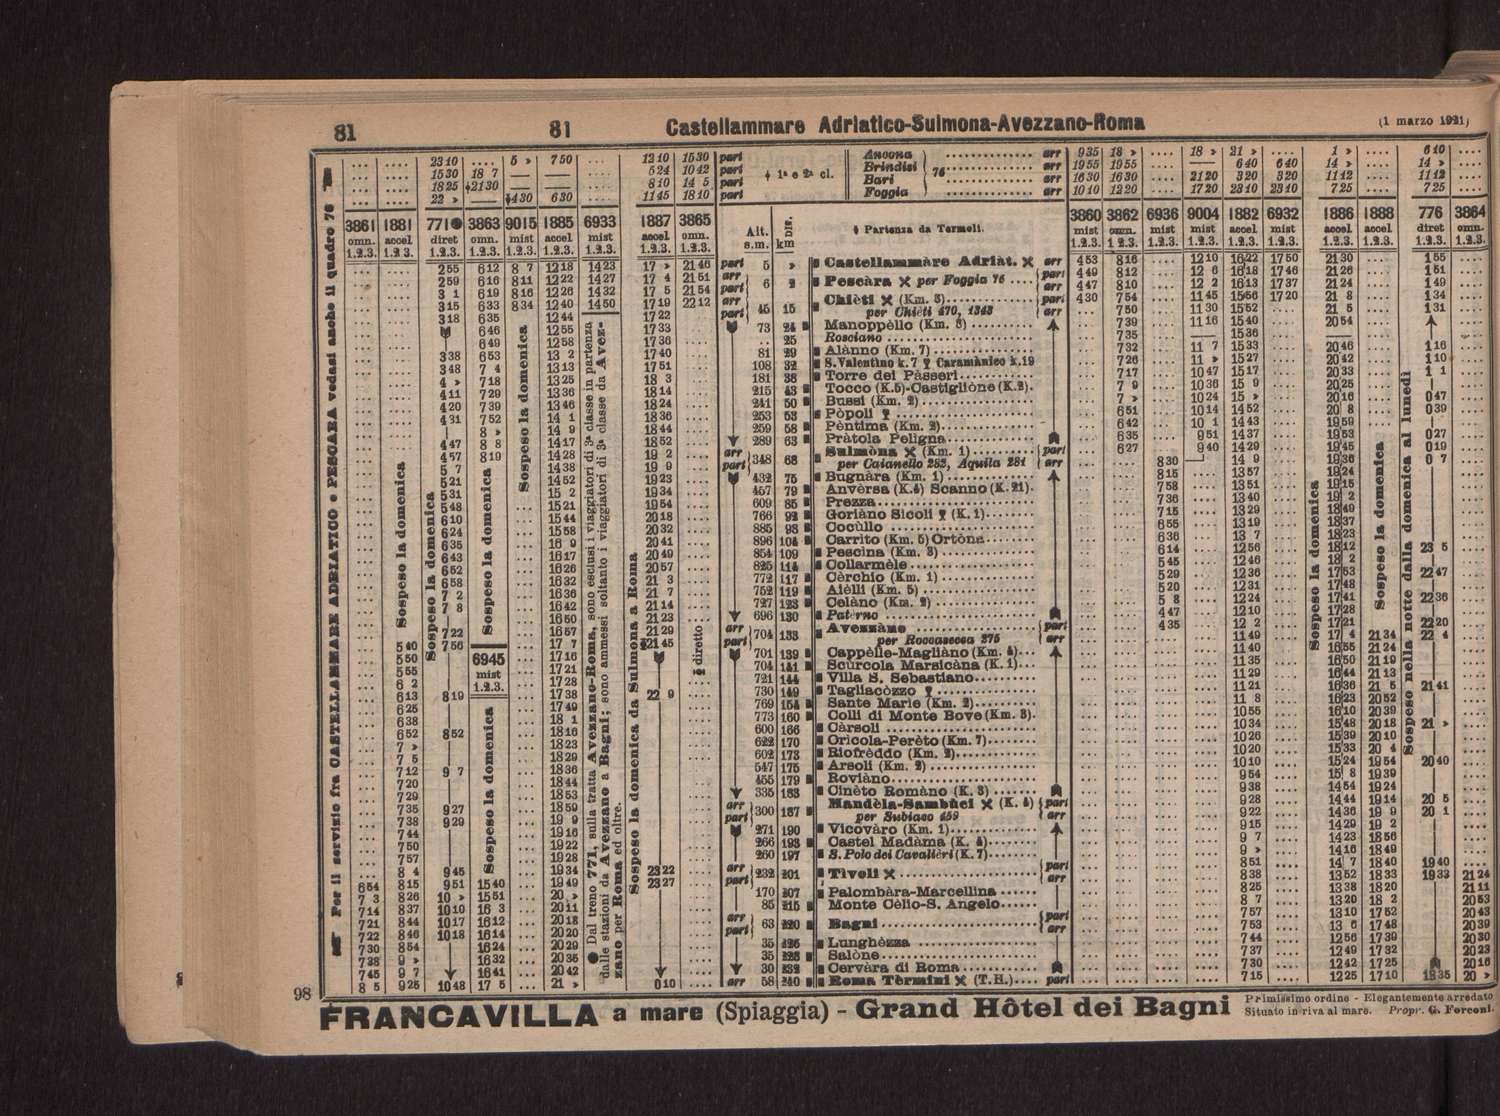 81 81 Castellammare Adriatico-Sulmona-Avezzano-Roma (1 marzo 1921)
... .... 23 10 .... 5 » 7 50 .... 12 10 15 30 part Ancona arr 9 35 18 » .... 18 » 21 » .... 1 » .... 6 10
... .... 15 30 18 7 — — .... 5 24 10 42 part ⸸ 1ª e 2ª cl. Brindisi 76 arr 19 55 19 55 .... — 6 40 6 40 14 » .... 14 » ....
... .... 18 25 21 30 — — .... 8 10 14 5 part Bari arr 16 30 16 30 .... 21 20 3 20 3 20 11 12 .... 11 12 ....
... .... 22 » — 4 30 6 30 .... 11 45 18 10 part Foggia arr 10 10 12 20 .... 17 20 23 10 23 10 7 25 .... 7 25 ....
3861 1881 771 3863 9015 1885 6933 1887 3865 Alt. s.m. DIS. km Partenza da Termoli. 3860 3862 6936 9004 1882 6932 1886 1888 776 3864
omn. accel diret omn. mist accel mist accel omn. mist omn. mist mist accel mist accel accel diret omn.
1.2.3. 1.2.3. 1.2.3. 1.2.3. 1.2.3. 1.2.3. 1.2.3. 1.2.3. 1.2.3. 1.2.3. 1.2.3. 1.2.3. 1.2.3. 1.2.3. 1.2.3. 1.2.3. 1.2.3. 1.2.3. 1.2.3.
2 55 6 12 8 7 12 18 14 23 17 » 21 46 part 5 » Castellammàre Adriàt. arr 4 53 8 16 .... 12 10 16 22 17 50 21 30 .... 1 55
2 59 6 16 8 11 12 22 14 27 17 4 21 51 arr 6 2 Pescàra per Foggia 76 part 4 49 8 12 .... 12 6 16 18 17 46 21 26 .... 1 51
3 1 6 19 8 16 12 26 14 32 17 5 21 54 part arr 4 47 8 10 .... 12 2 16 13 17 37 21 24 .... 1 49
3 15 6 33 8 34 12 40 14 50 17 19 22 12 arr 45 15 Chièti (Km. 3) part 4 30 7 54 .... 11 45 15 56 17 20 21 8 .... 1 34
3 18 6 35 12 44 17 22 part per Chièti 470, 1343 arr 7 50 11 30 15 52 21 5 1 31
6 46 12 55 17 33 73 24 Manoppèllo (Km. 3) 7 39 11 16 15 40 20 54
6 49 12 58 17 36 .. 25 Rosciano 7 35 15 36
3 38 6 53 13 2 17 40 81 29 Alànno (Km. 7) 7 32 11 7 15 33 20 46 1 16
3 48 7 4 13 13 17 51 108 32 S. Valentino k. 7 Caramànico k. 19 7 26 11 » 15 27 20 42 1 10
4 » 7 18 13 25 18 3 181 38 Torre dei Pàsseri 7 17 10 47 15 17 20 33 1 1
4 11 7 29 13 36 18 14 215 43 Tocco (K.5)-Castigliòne (K.2) 7 9 10 36 15 9 20 25
4 20 7 39 13 46 18 24 241 50 Bussi (Km. 2) 7 » 10 24 15 » 20 16 0 47
4 31 7 52 14 1 18 36 253 53 Pòpoli 6 51 10 14 14 52 20 8 0 39
8 » 14 9 18 44 259 58 Pèntima (Km. 2) 6 42 10 1 14 43 19 59
4 47 8 8 14 17 18 52 289 63 Pràtola Peligna 6 35 9 51 14 37 19 53 0 27
4 57 8 19 14 28 19 2 arr 348 68 Sulmòna (Km. 1) part 6 27 9 40 14 29 19 45 0 19
5 7 14 38 19 9 part per Caianello 283, Aquila 281 arr 8 30 14 9 19 36 0 7
5 21 14 52 19 23 432 75 Bugnàra (Km. 1) 8 15 13 57 19 24
5 31 15 2 19 34 457 79 Anvèrsa (K.4) Scanno (K.21) 7 58 13 51 19 15
5 48 15 21 19 54 609 85 Prezza 7 36 13 40 19 2
6 10 15 44 20 18 766 92 Goriàno Sicoli (K. 1) 7 15 13 29 18 49
6 24 15 58 20 32 885 98 Cocùllo 6 55 13 19 18 37
6 35 16 9 20 41 896 104 Carrito (Km. 5) Ortòna 6 36 13 7 18 23
6 43 16 17 20 49 854 109 Pescina (Km. 3) 6 14 12 56 18 12 23 5
6 52 16 26 20 57 825 114 Collarmèle 5 45 12 46 18 2
6 58 16 32 21 3 772 117 Cèrchio (Km. 1) 5 29 12 36 17 53 22 47
16 36 21 7 752 119 Aièlli (Km. 5) 5 20 12 31 17 48
7 2 16 42 21 14 727 123 Celàno (Km. 2) 5 8 12 24 17 41 22 36
7 8 16 50 21 23 696 130 Paterno 4 47 12 10 17 28
7 22 16 57 21 29 arr 704 133 Avezzàno part 4 35 12 2 17 21 22 20
5 40 7 56 17 7 21 45 part per Roccasecca 275 arr 11 49 17 4 21 34 22 4
5 50 6945 17 16 701 139 Cappèlle-Magliàno (Km. 4) 11 40 16 55 21 24
5 55 mist 17 21 704 141 Scùrcola Marsicàna (K. 1) 11 35 16 50 21 19
6 2 1.2.3. 17 28 721 144 Villa S. Sebastiano 11 29 16 44 21 13
6 13 8 19 17 38 22 9 730 149 Tagliacòzzo 11 21 16 36 21 5 21 41
6 25 17 49 769 154 Sante Marie (Km. 2) 11 8 16 23 20 52
6 38 18 1 773 160 Colli di Monte Bove (Km. 3) 10 55 16 10 20 39
6 52 8 52 18 16 600 166 Càrsoli 10 34 15 48 20 18 21 »
7 » 18 23 622 170 Oricola-Perèto (Km. 7) 10 26 15 39 20 10
7 5 18 29 602 173 Riofrèddo (Km. 2) 10 20 15 33 20 4
7 12 9 7 18 36 547 175 Arsoli (Km. 2) 10 10 15 24 19 54 20 40
7 20 18 44 455 179 Roviàno 9 54 15 8 19 39
7 29 18 53 335 183 Cinèto Romàno (K. 3) 9 38 14 54 19 24
7 35 9 27 18 59 arr 300 187 Mandèla-Sambùci (K. 4) part 9 28 14 44 19 14 20 5
7 38 9 29 19 9 part per Subiaco 459 arr 9 22 14 36 19 9 20 1
7 44 19 16 271 190 Vicovàro (Km. 1) 9 15 14 29 19 2
7 50 19 22 266 193 Castel Madàma (K. 4) 9 7 14 23 18 56
7 57 19 28 260 197 S. Polo dei Cavalièri (K. 7) 9 » 14 16 18 49
8 4 9 45 19 34 23 22 arr 232 201 Tivoli part 8 51 14 7 18 40 19 40
6 54 8 15 9 51 15 40 19 49 23 27 part arr 8 38 13 52 18 33 19 33 21 24
7 3 8 26 10 » 15 51 20 » 170 207 Palombàra-Marcellina 8 25 13 38 18 20 21 11
7 14 8 37 10 10 16 3 20 11 85 215 Monte Cèlio-S. Angelo 8 7 13 20 18 2 20 53
7 21 8 44 10 17 16 12 20 18 arr 63 220 Bagni part 7 57 13 10 17 52 20 43
7 22 8 46 10 18 16 14 20 20 part arr 7 53 13 6 17 48 20 39
7 30 8 54 16 24 20 29 35 Lunghèzza 7 44 12 56 17 39 20 30
7 38 9 » 16 32 20 35 35 Salòne 7 37 12 49 17 32 20 23
7 45 9 7 16 41 20 42 30 232 Cervàra di Roma 7 30 12 42 17 25 20 16
8 5 9 25 10 48 17 5 21 » 0 10 arr 58 240 Roma Tèrmini (T.H.) part 7 15 12 25 17 10 18 35 20 »
Per il servizio fra CASTELLAMMARE ADRIATICO e PESCARA vedasi anche il quadro 76
Sospeso la domenica
Sospeso la domenica
Sospeso la domenica
Sospeso la domenica
Sospeso la domenica
Dal treno 771, sulla tratta Avezzano-Roma, sono esclusi i viaggiatori di 3ª classe in partenza
dalle stazioni da Avezzano a Bagni; sono ammessi soltanto i viaggiatori di 3ª classe da Avez-
zano per Roma ed oltre.
Sospeso la domenica da Sulmona a Roma
diretto
Sospeso la domenica
Sospeso la domenica
Sospeso nella notte dalla domenica al lunedì
98
FRANCAVILLA a mare (Spiaggia) - Grand Hôtel dei Bagni Primissimo ordine - Elegantemente arredato
Situato in riva al mare. Propr. G. Forconi.